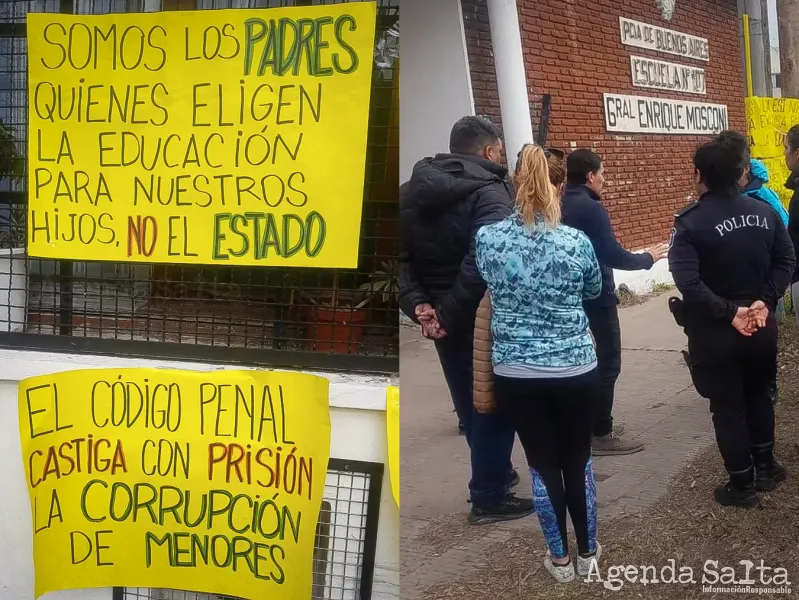 SOMOS LOS PADRES
QUIENES ELIGEN
LA EDUCACIÓN
PARA NUESTROS
HIJOS, NO EL ESTADO
EL CÓDIGO PENAL
CASTIGA CON PRISIÓN
LA CORRUPCIÓN
DE MENORES
PCIA DE BUENOS AIRES
ESCUELA Nº 107
GRAL ENRIQUE MOSCONI
POLICIA
Agenda Salta
InformaciónResponsable